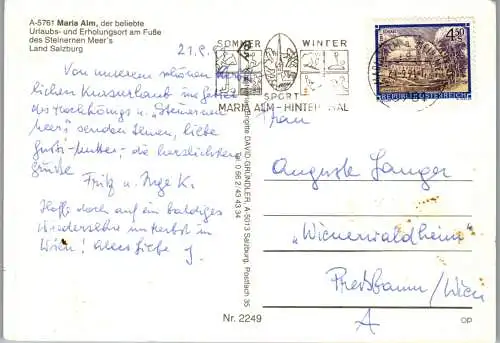 A-5761 Maria Alm, der beliebte
Urlaubs- und Erholungsort am Fuße
des Steinernen Meer's
Land Salzburg
21.8.
Von unserem schönen herr-
lichen Kurzurlaub im Gebiet
des Hochkönigs u. "Steinernen
Meer" senden Ihnen, liebe
Gusti-Mutter, die herzlichsten
Grüße
Fritz u. Inge K.
Hoffe doch auf ein baldiges
Wiedersehn im Herbst in
Wien! Alles Liebe J.
SOMMER WINTER
SPORT
MARIA ALM-HINTERTHAL
4.50 S
REPUBLIK ÖSTERREICH
Brigitte DAVID GRÜNDLER, A-5013 Salzburg, Postfach 35
Tel. 0 66 2/43 43 34
Nr. 2249
Frau
Auguste Langer
"Wienerwaldheim"
Pressbaum/Wien
A
OP